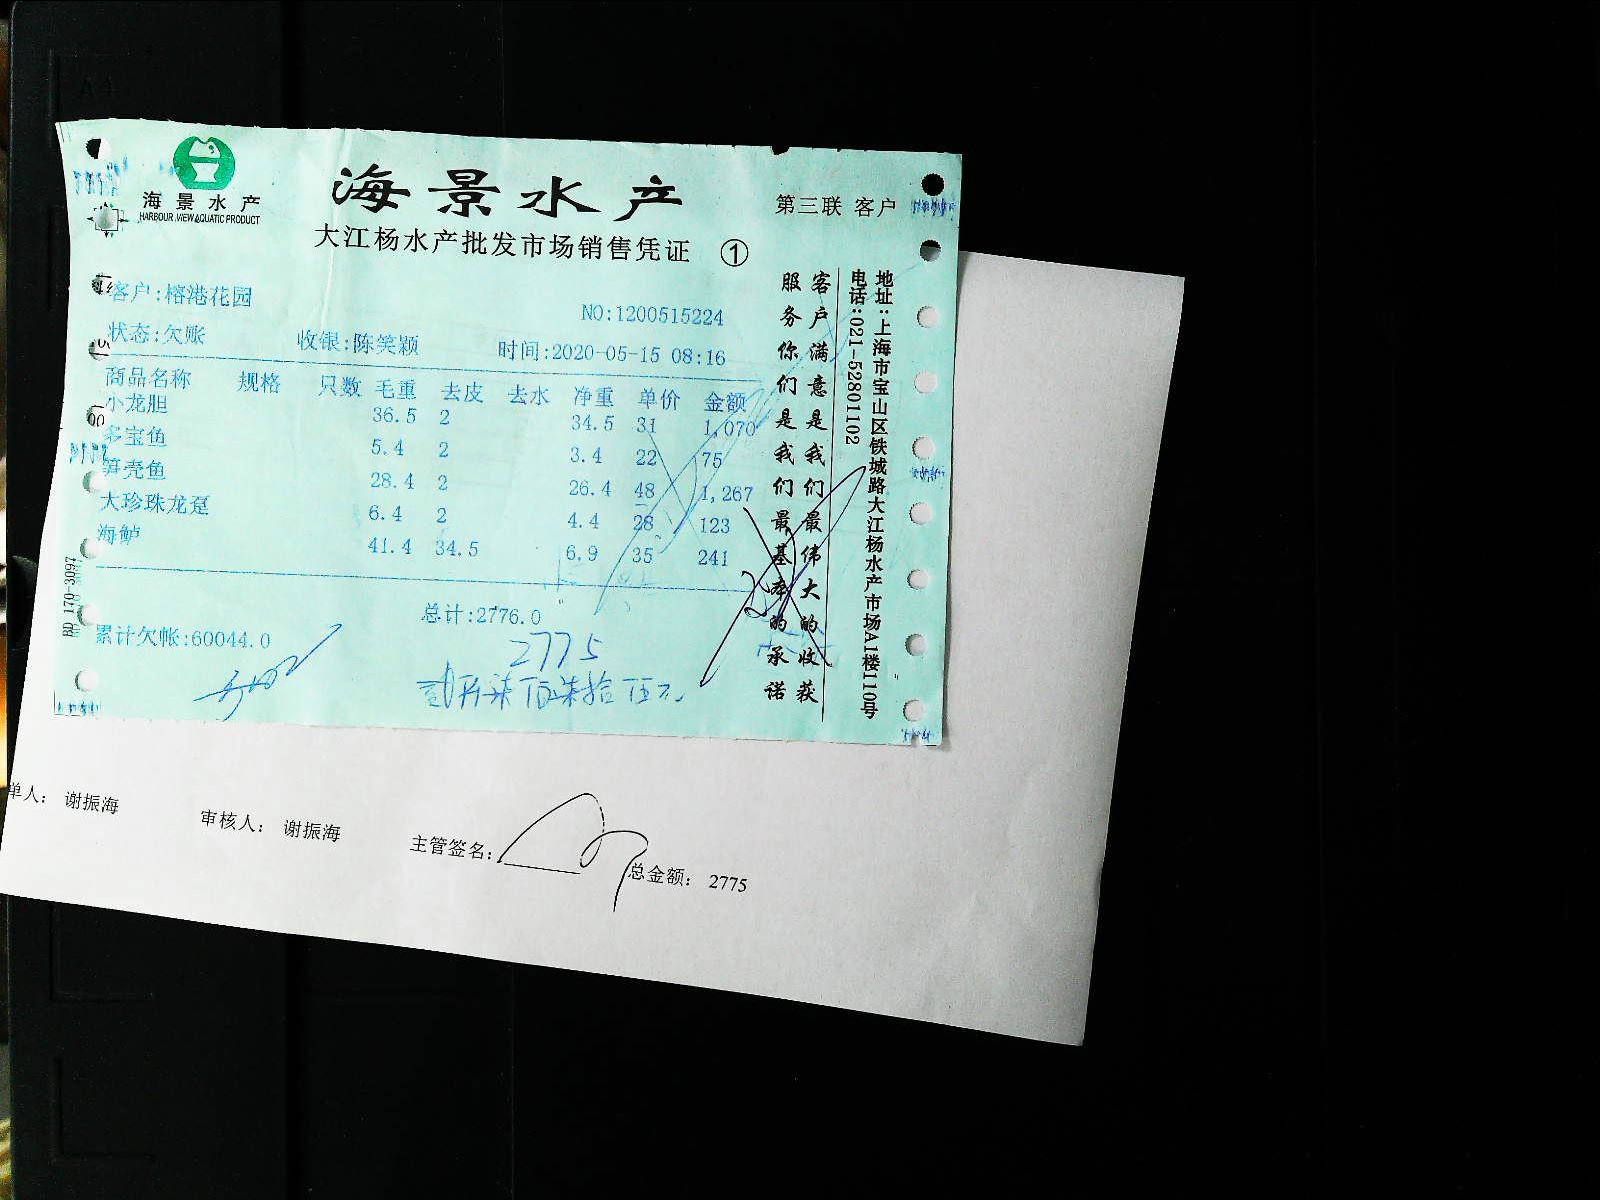 海景水产
HARBOUR VIEW AQUATIC PRODUCT
海景水产
大江杨水产批发市场销售凭证 ①
第三联 客户
客户:榕港花园
NO:1200515224
状态:欠账 收银:陈笑颖 时间:2020-05-15 08:16
商品名称 规格 只数 毛重 去皮 去水 净重 单价 金额
小龙胆 36.5 2 34.5 31 1,070
多宝鱼 5.4 2 3.4 22 75
笋壳鱼 28.4 2 26.4 48 1,267
大珍珠龙趸 6.4 2 4.4 28 123
海鲈 41.4 34.5 6.9 35 241
总计:2776.0
累计欠帐:60044.0
2775
贰仟柒佰柒拾伍元
客户满意是我们最伟大的收获
服务你们是我们最基本的承诺
地址:上海市宝山区铁城路大江杨水产市场A1楼110号
电话:021-52801102
BD 170-3097
单人: 谢振海
审核人: 谢振海
主管签名:
总金额: 2775
A4